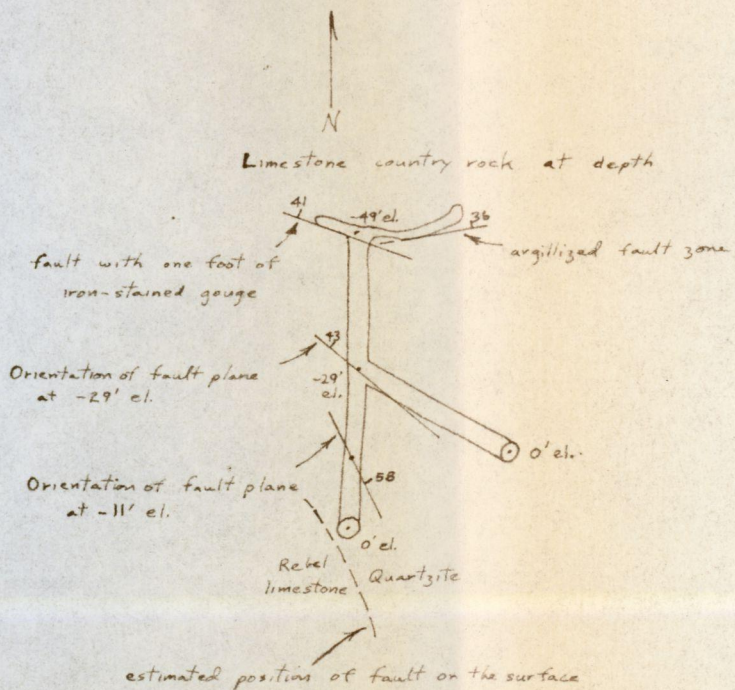 N
Limestone country rock at depth
41
-49' el.
36
argillized fault zone
fault with one foot of
iron-stained gouge
43
Orientation of fault plane
at -29' el.
-29'
el.
0' el.
58
Orientation of fault plane
at -11' el.
0' el.
Rebel
limestone
Quartzite
estimated position of fault on the surface